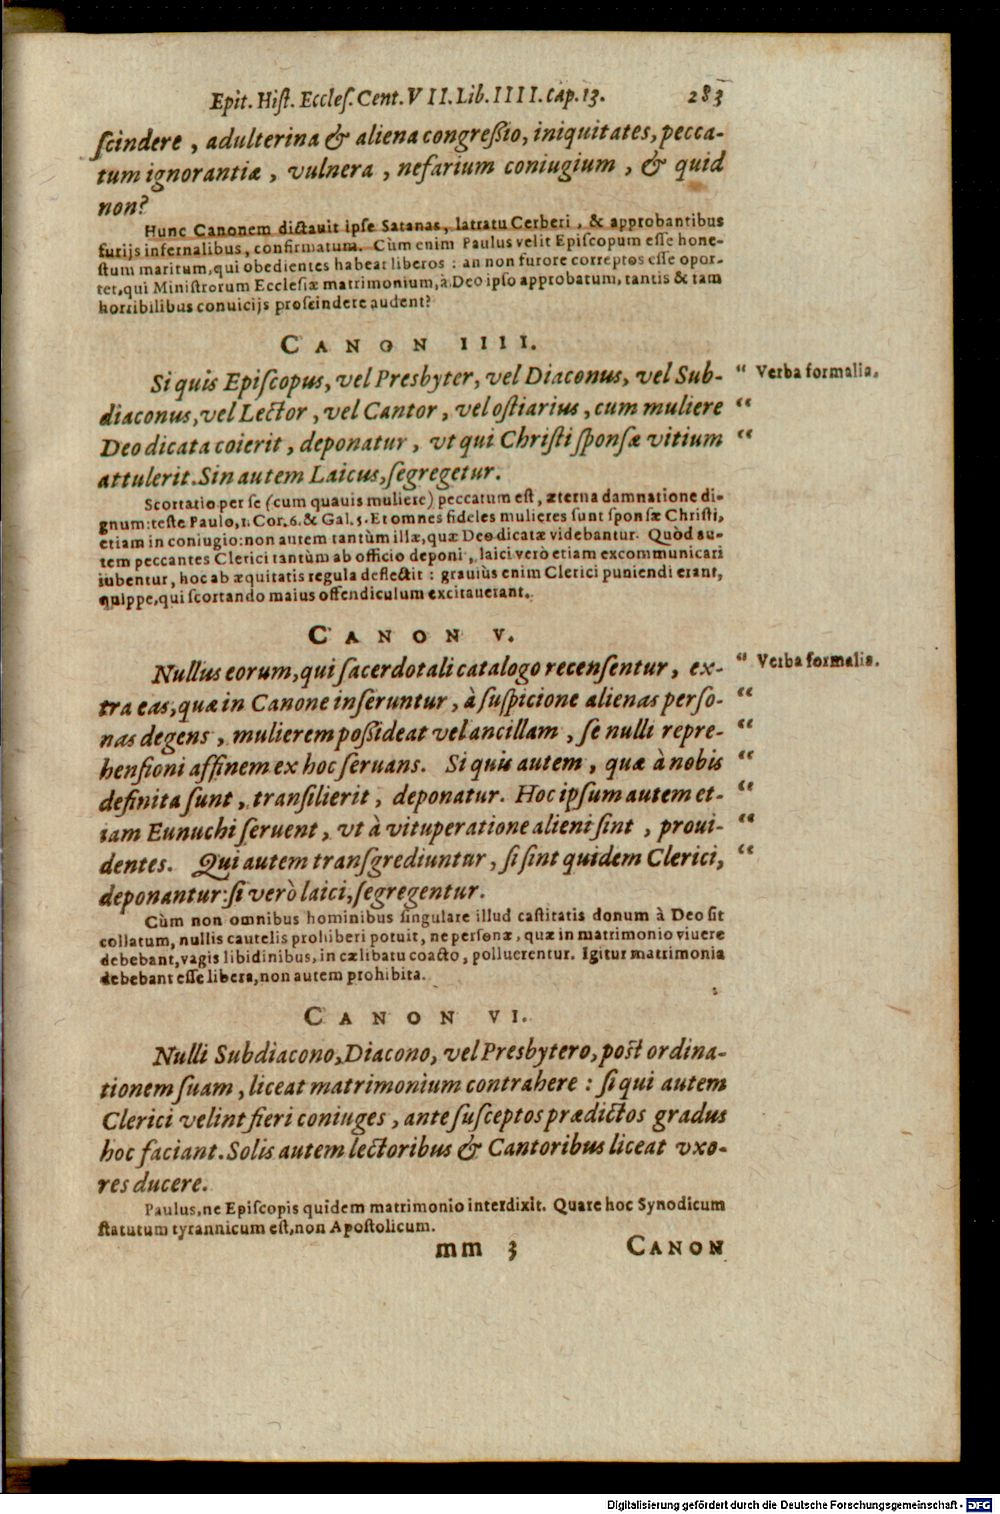 Epit. Hiſt. Eccleſ. Cent. VII. Lib. IIII. cap. 13. 283
ſcindere, adulterina & aliena congreßio, iniquitates, pecca-
tum ignorantiæ, vulnera, nefarium coniugium, & quid
non?
Hunc Canonem dictauit ipſe Satanas, latratu Cerberi, & approbantibus
furijs infernalibus, confirmatum. Cùm enim Paulus velit Epiſcopum eſſe hone-
ſtum maritum, qui obedientes habeat liberos: an non furore correptos eſſe opor-
tet, qui Miniſtrorum Eccleſiæ matrimonium, à Deo ipſo approbatum, tantis & tam
horribilibus conuicijs proſcindere audent?
CANON IIII.
Si quis Epiſcopus, vel Presbyter, vel Diaconus, vel Sub- “ Verba formalia.
diaconus, vel Lector, vel Cantor, vel oſtiarius, cum muliere “
Deo dicata coierit, deponatur, vt qui Chriſti ſponſæ vitium “
attulerit. Sin autem Laicus, ſegregetur.
Scortatio per ſe (cum quauis muliere) peccatum eſt, æterna damnatione di-
gnum: teſte Paulo, 1. Cor. 6. & Gal. 5. Et omnes fideles mulieres ſunt ſponſæ Chriſti,
etiam in coniugio: non autem tantùm illæ, quæ Deo dicatæ videbantur. Quòd au-
tem peccantes Clerici tantùm ab officio deponi, laici verò etiam excommunicari
iubentur, hoc ab æquitatis regula deflectit: grauiùs enim Clerici puniendi erant,
quippe, qui ſcortando maius offendiculum excitauerant.
CANON V.
Nullus eorum, qui ſacerdotali catalogo recenſentur, ex- “ Verba formalia.
tra eas, quæ in Canone inſeruntur, à ſuſpicione alienas perſo- “
nas degens, mulierem poßideat vel ancillam, ſe nulli repre- “
henſioni affinem ex hoc ſeruans. Si quis autem, quæ à nobis “
definita ſunt, tranſilierit, deponatur. Hoc ipſum autem et- “
iam Eunuchi ſeruent, vt à vituperatione alieni ſint, proui- “
dentes. Qui autem tranſgrediuntur, ſi ſint quidem Clerici, “
deponantur: ſi verò laici, ſegregentur.
Cùm non omnibus hominibus ſingulare illud caſtitatis donum à Deo ſit
collatum, nullis cautelis prohiberi potuit, ne perſonæ, quæ in matrimonio viuere
debebant, vagis libidinibus, in cælibatu coacto, polluerentur. Igitur matrimonia
debebant eſſe libera, non autem prohibita.
CANON VI.
Nulli Subdiacono, Diacono, vel Presbytero, poſt ordina-
tionem ſuam, liceat matrimonium contrahere: ſi qui autem
Clerici velint fieri coniuges, ante ſuſceptos prædictos gradus
hoc faciant. Solis autem lectoribus & Cantoribus liceat vxo-
res ducere.
Paulus, ne Epiſcopis quidem matrimonio interdixit. Quare hoc Synodicum
ſtatutum tyrannicum eſt, non Apoſtolicum.
mm 3 CANON
Digitalisierung gefördert durch die Deutsche Forschungsgemeinschaft - DFG